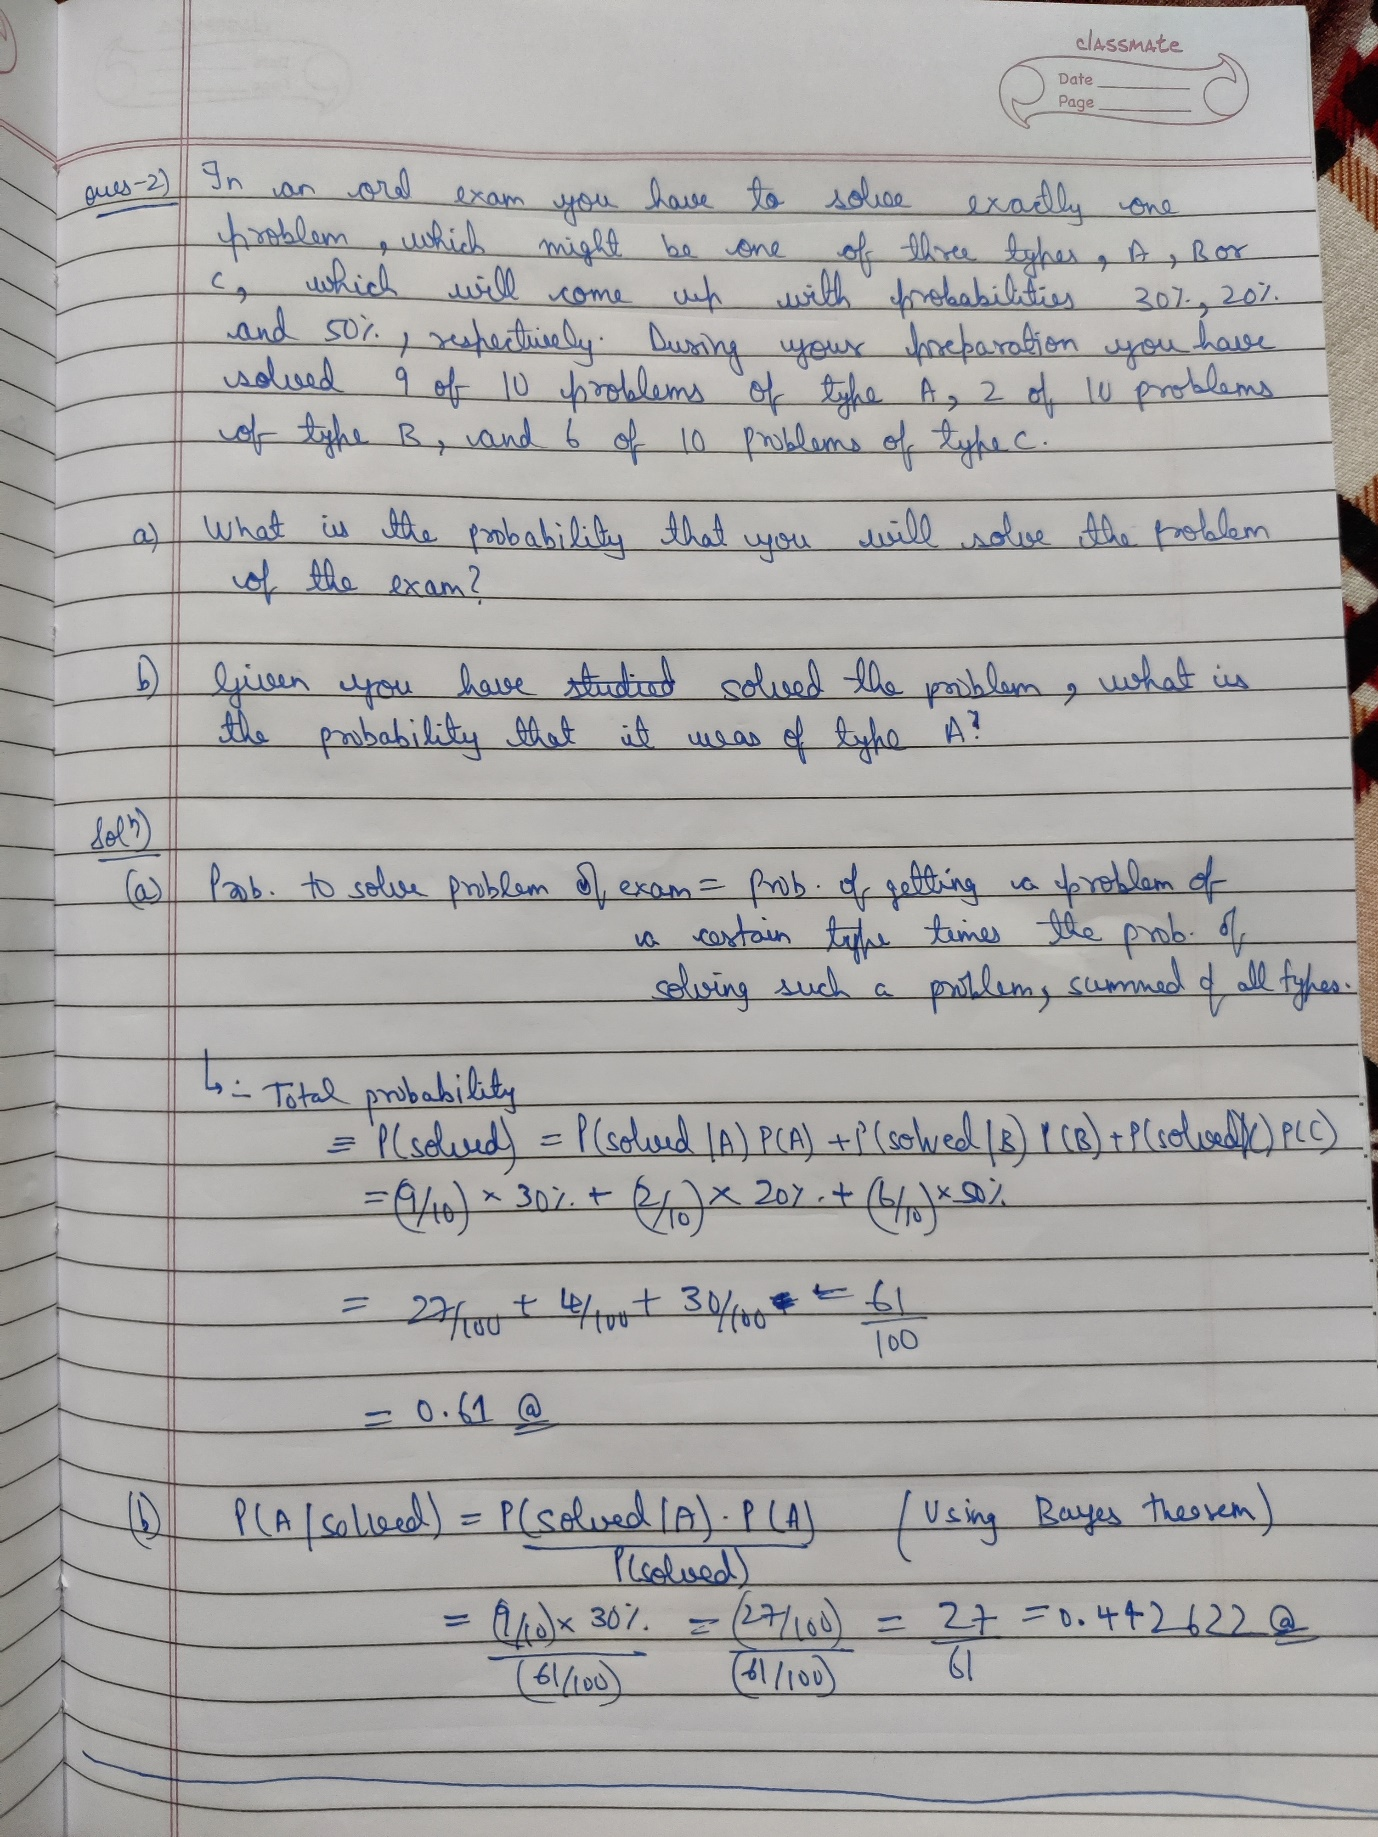 classmate
Date
Page
Ques-2) In an oral exam you have to solve exactly one
problem, which might be one of three types, A, B or
C, which will come up with probabilities 30%, 20%
and 50%, respectively. During your preparation you have
solved 9 of 10 problems of type A, 2 of 10 problems
of type B, and 6 of 10 problems of type C.
a) What is the probability that you will solve the problem
of the exam?
b) Given you have studied solved the problem, what is
the probability that it was of type A?
Solⁿ)
(a) Prob. to solve problem of exam = prob. of getting a problem of
a certain type times the prob. of
solving such a problem, summed of all types.
↳ :- Total probability
= P(solved) = P(solved |A) P(A) + P(solved |B) P(B) + P(solved|C) P(C)
= (9/10) × 30% + (2/10) × 20% + (6/10) × 50%
= 27/100 + 4/100 + 30/100 = 61
100
= 0.61 @
(b) P(A | solved) = P(solved |A) . P(A) (Using Bayes theorem)
P(solved)
= (9/10) × 30% = (27/100) = 27 = 0.442622 @
(61/100) (61/100) 61